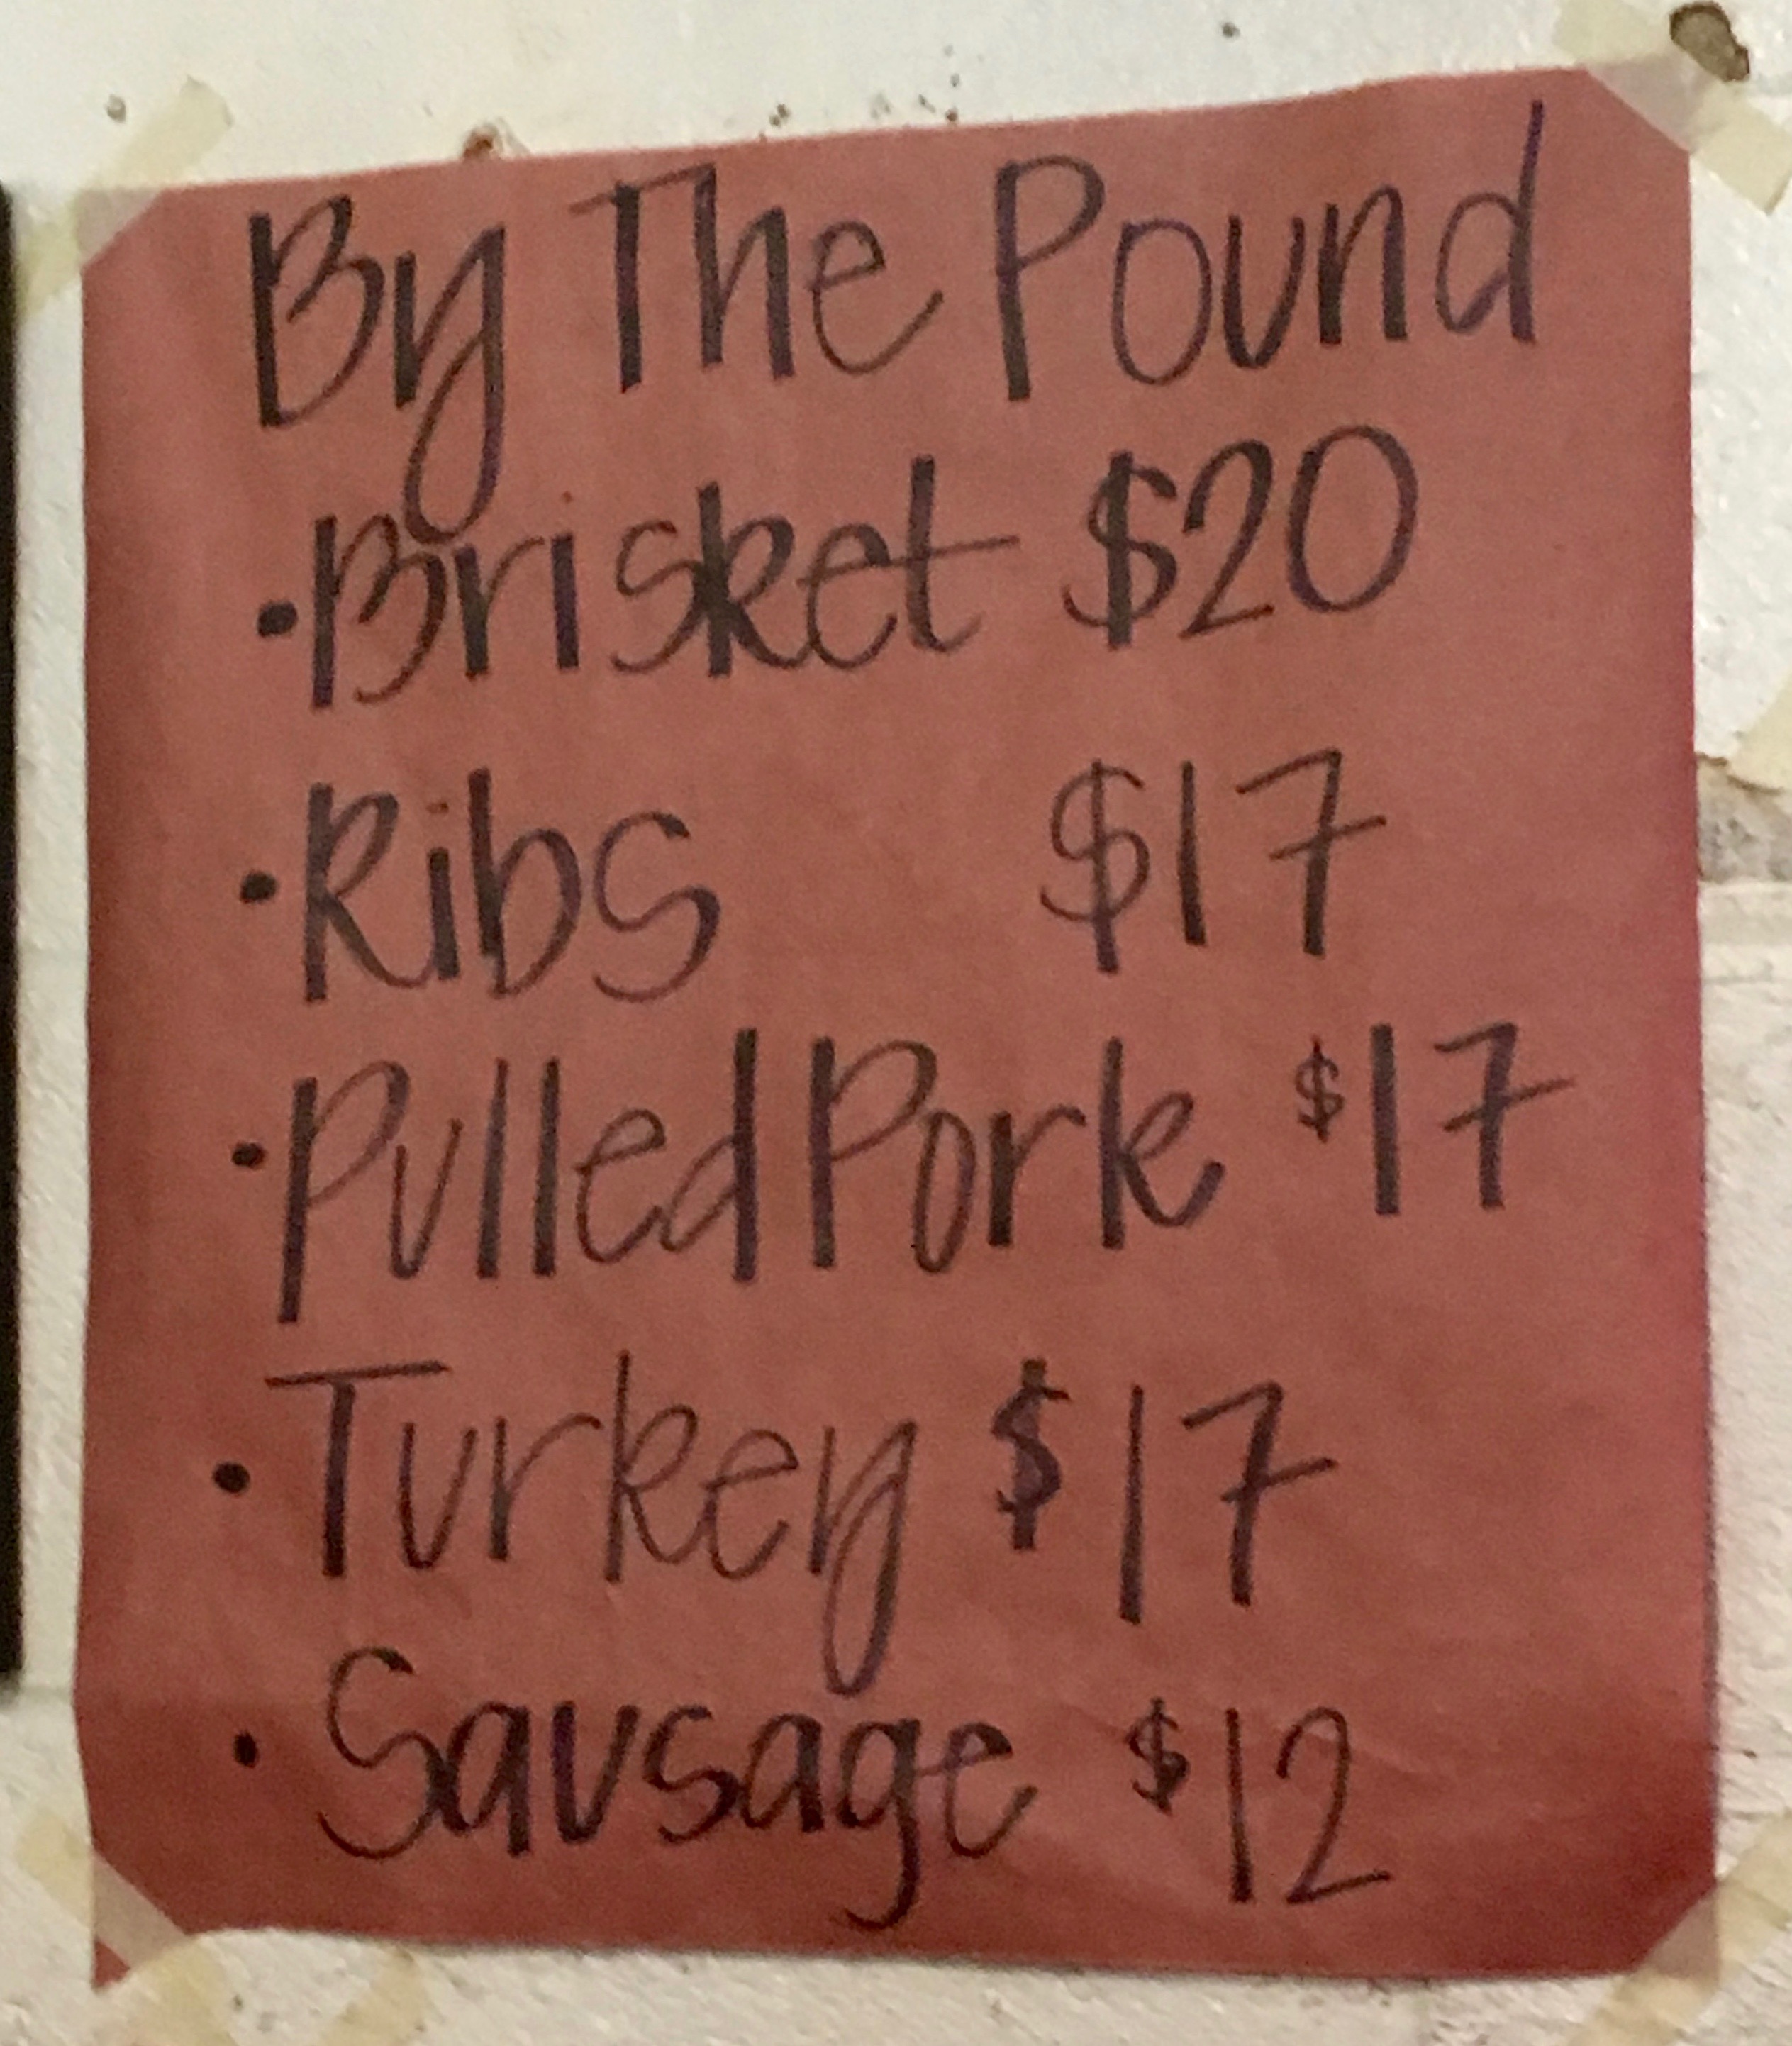 By The Pound
·Brisket $20
·Ribs $17
·Pulled Pork $17
·Turkey $17
·Sausage $12